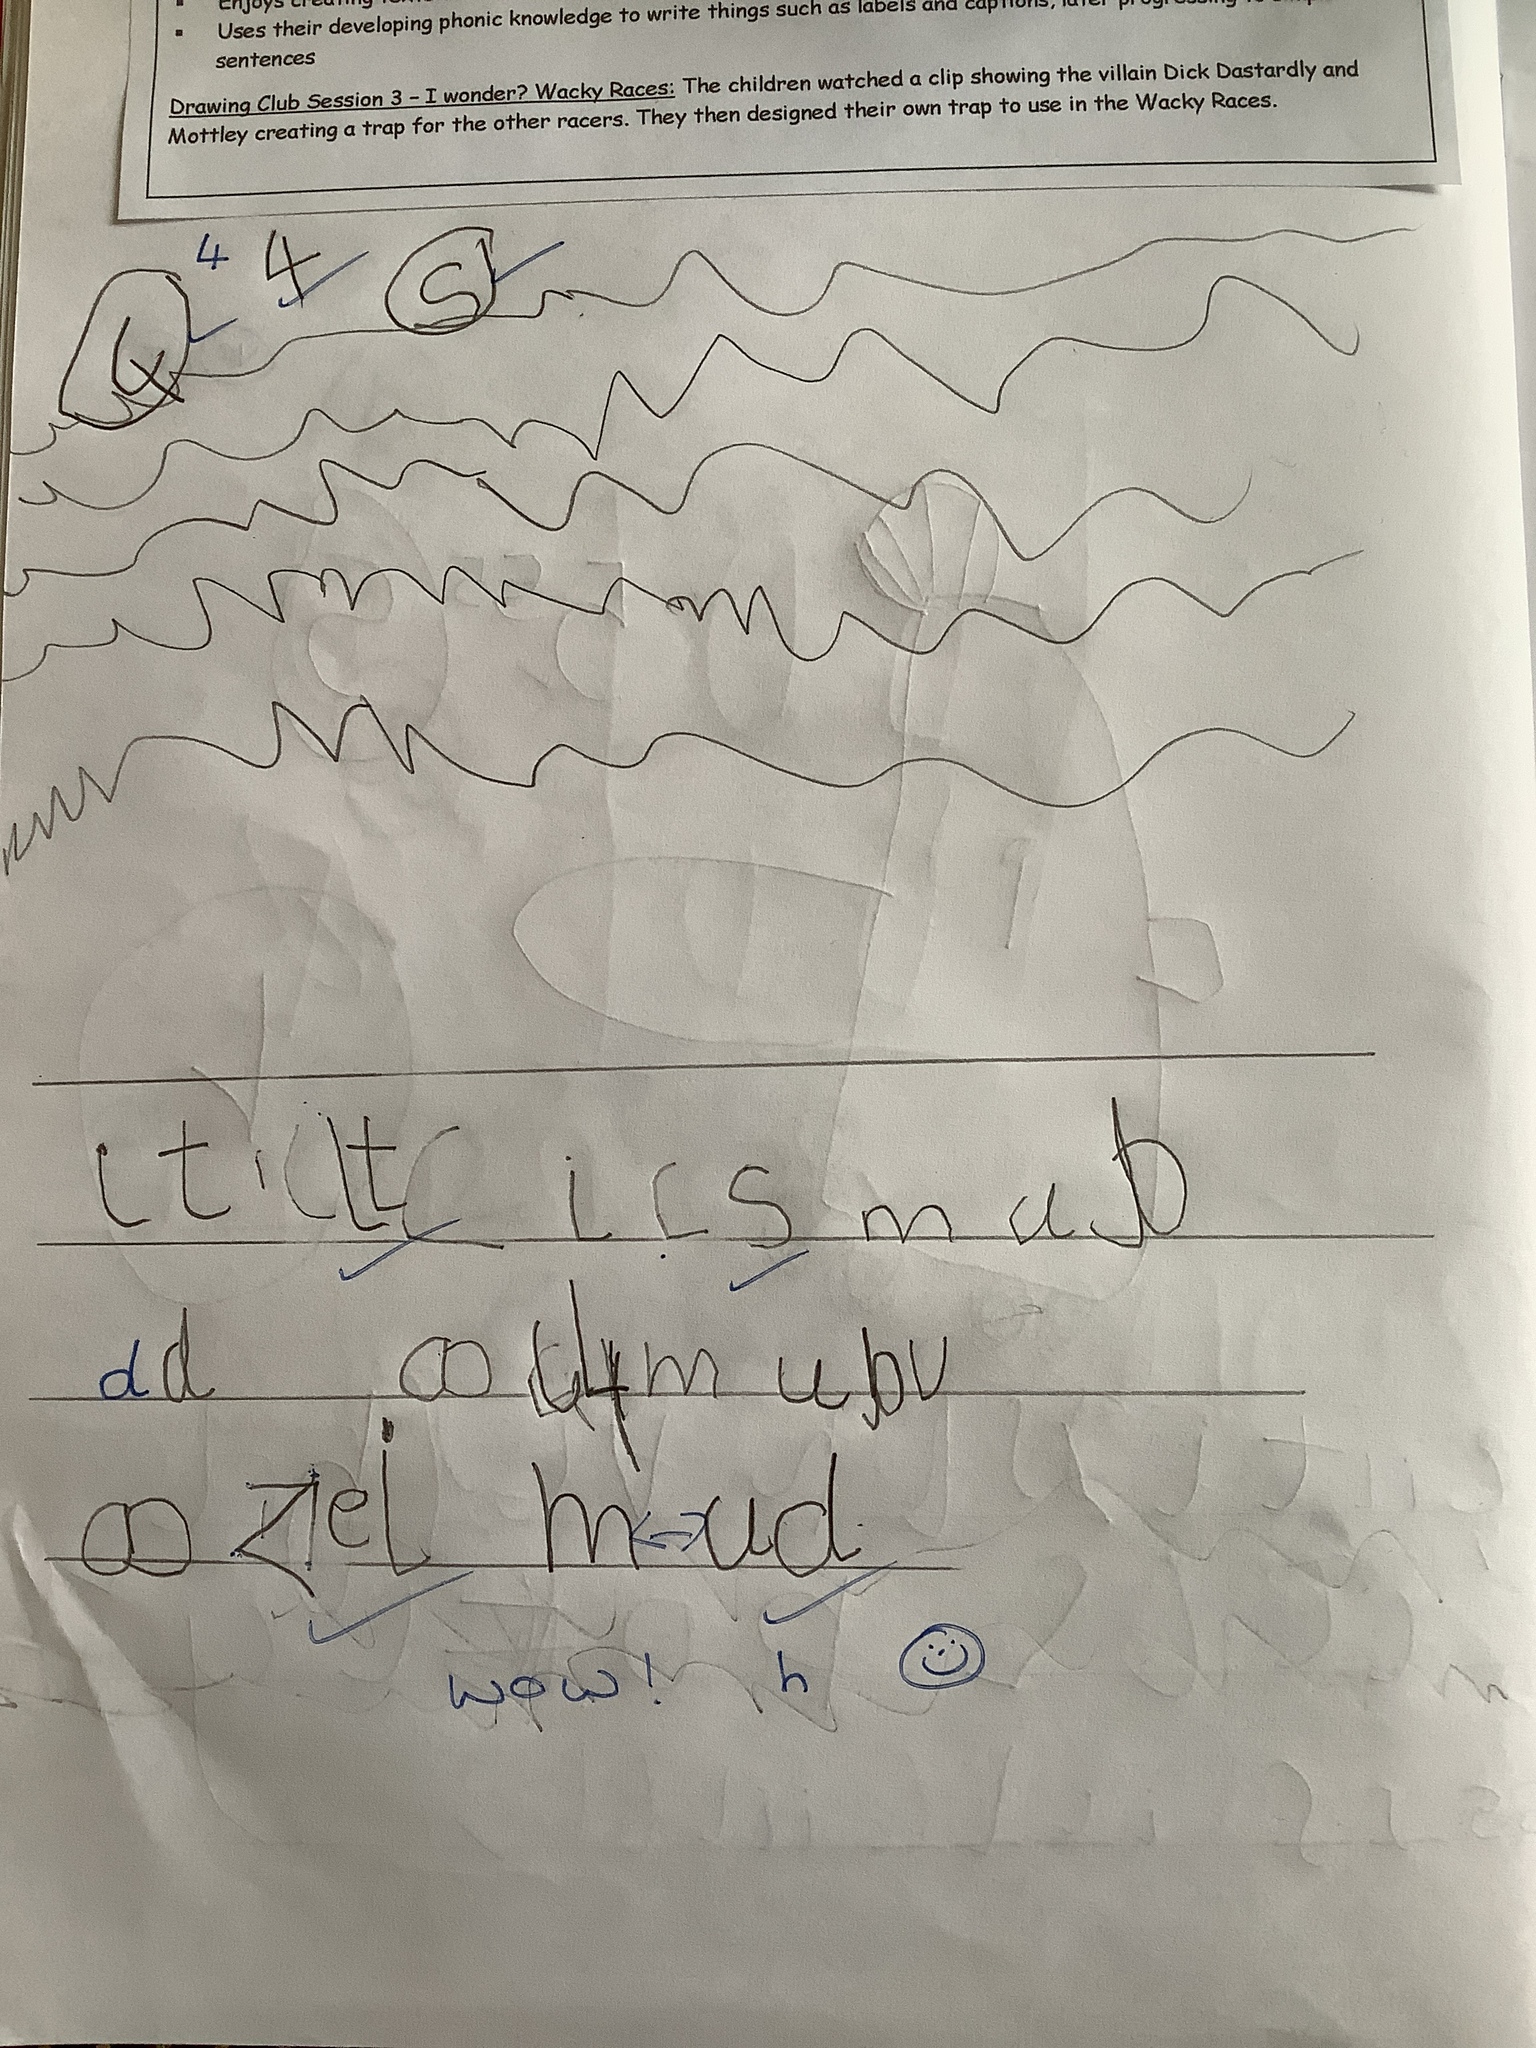 Uses their developing phonic knowledge to write things such as labels and captions, later progressing to
sentences
Drawing Club Session 3 – I wonder? Wacky Races: The children watched a clip showing the villain Dick Dastardly and
Mottley creating a trap for the other racers. They then designed their own trap to use in the Wacky Races.
4 4 S
4
it is mub
dd oo m u bu
oo ziel mud
wow! h